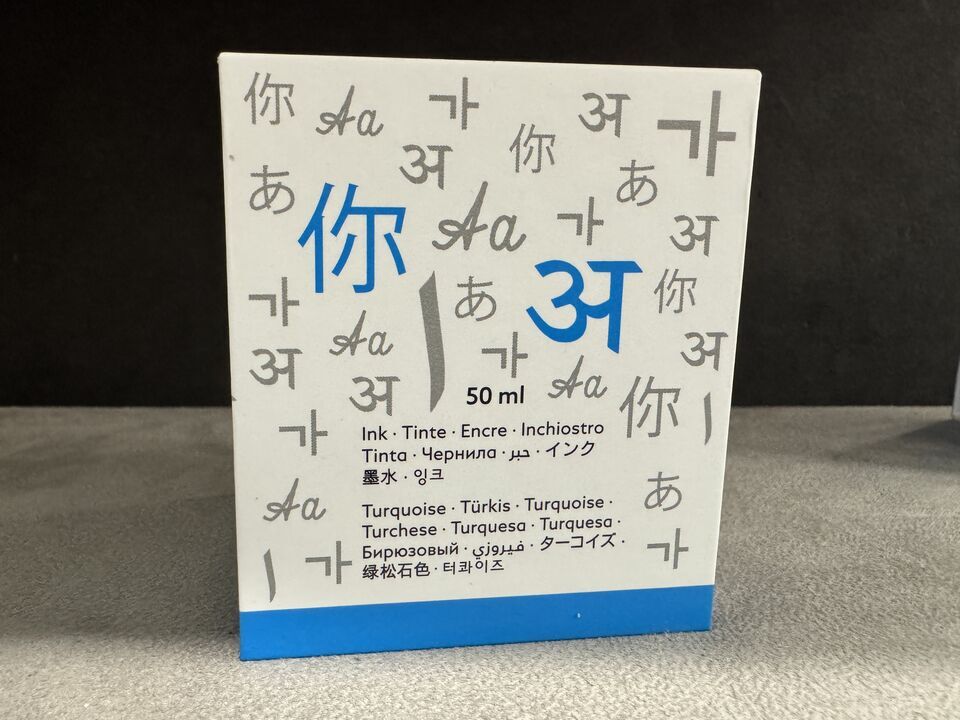 你 Aa 가 अ 가
अ 你
あ あ
你 Aa 가 अ
가 ا あ अ 你
Aa 가 अ
अ अ Aa 你 ا
50 ml
가
Ink · Tinte · Encre · Inchiostro
Tinta · Чернила · حبر · インク
墨水 · 잉크
Aa あ
Turquoise · Türkis · Turquoise ·
Turchese · Turquesa · Turquesa ·
Бирюзовый · فيروزي · ターコイズ ·
绿松石色 · 터콰이즈
ا 가 가